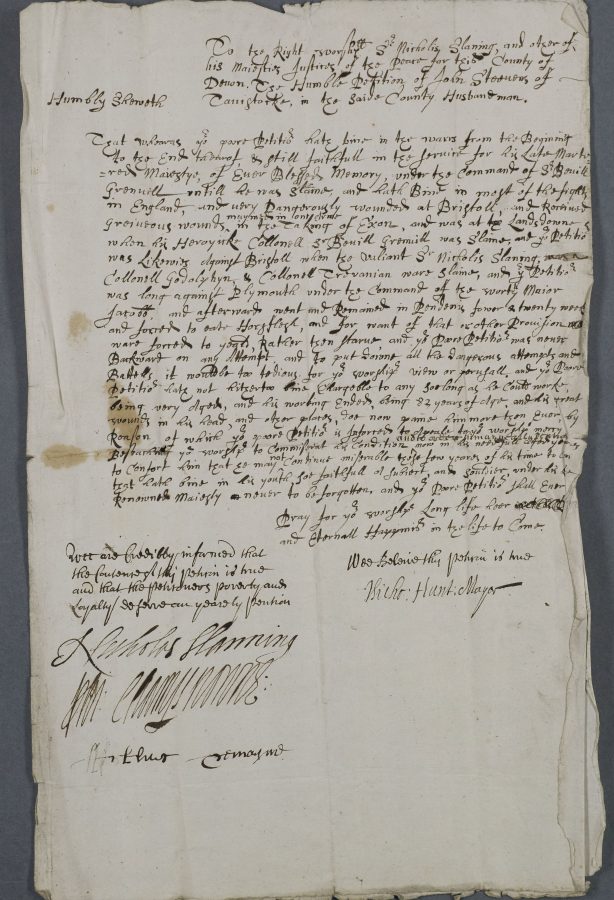 To the Right worshipll Sr Nicholis Slaning, and other of
his Maiesties Justices of the Peace for this County of
Devon. The Humble Petition of John Steevens of
Humbly Sheweth
Tavistocke, in the Saide County Husbandman.
That whereas yor poore Petitionr hath bine in the warrs from the Beginning
to the End thereof & still faithfull in the service for his Late Marte
=red Maiestye, of Ever Blessed Memory, under the Command of Sr Bevill
Grenvell untill he was Slaine, and hath Bine in most of the fights
in England, and very Dangerously wounded at Bristoll, and Received
Greiveous wounds in the Taking of Exon, and was at Landsdowne
when his Heroycke Collonell Sr Bevill Grenvill was Slaine, and yor Petitior
was Likewies against Bristoll when the valiant Sr Nicholis Slaning,
Collonell Godolphyn, & Collonell Trevanian ware Slaine, and yor Petitior
was long against Plymouth under the Command of the worthy Maior
and afterward went and Remained in Pendenis fower & twenty weeks
and forced to eate Horsflesh, and for want of that & other Provision
ware forced to Rather then starve, and yor Poore Petitior was never
Backward on any Attempt, and To put downe all the dangerous attempts and
Battells it would be too tedious for yor worships view or perusall, and yor Poore
Petitior hath not hitherto bine Chargeble to any so long as he Could work,
being very Aged, and his working Ended, being 82 yeares of Age and his great
wounds in his head, and other places, doe now paine him more then Ever, by
Reason of which yor poore Petitior is Inforced to yor worships mercy
Beseeching yor worships to Commiserat his Condition now in his
to Comfort him that he may not Continue miserable those few yeares of his time to Com
that hath bine in his youth soe faithfull a subiect, and souldier, under his
Renowned Maiesty never to be forgotten, and yor Poore Petitior shall Ever
Pray for yor worships Long life heer
and Eternall Happines in the life to Come.
Wee are Credibly informed that
the Contents of this Peticon is true
and that the petitioners poverty and
Loyalty deserve an yearely pention
Wee Beleive this Peticon is true
Richo: Hunt: Mayor
Nicholas Slanning